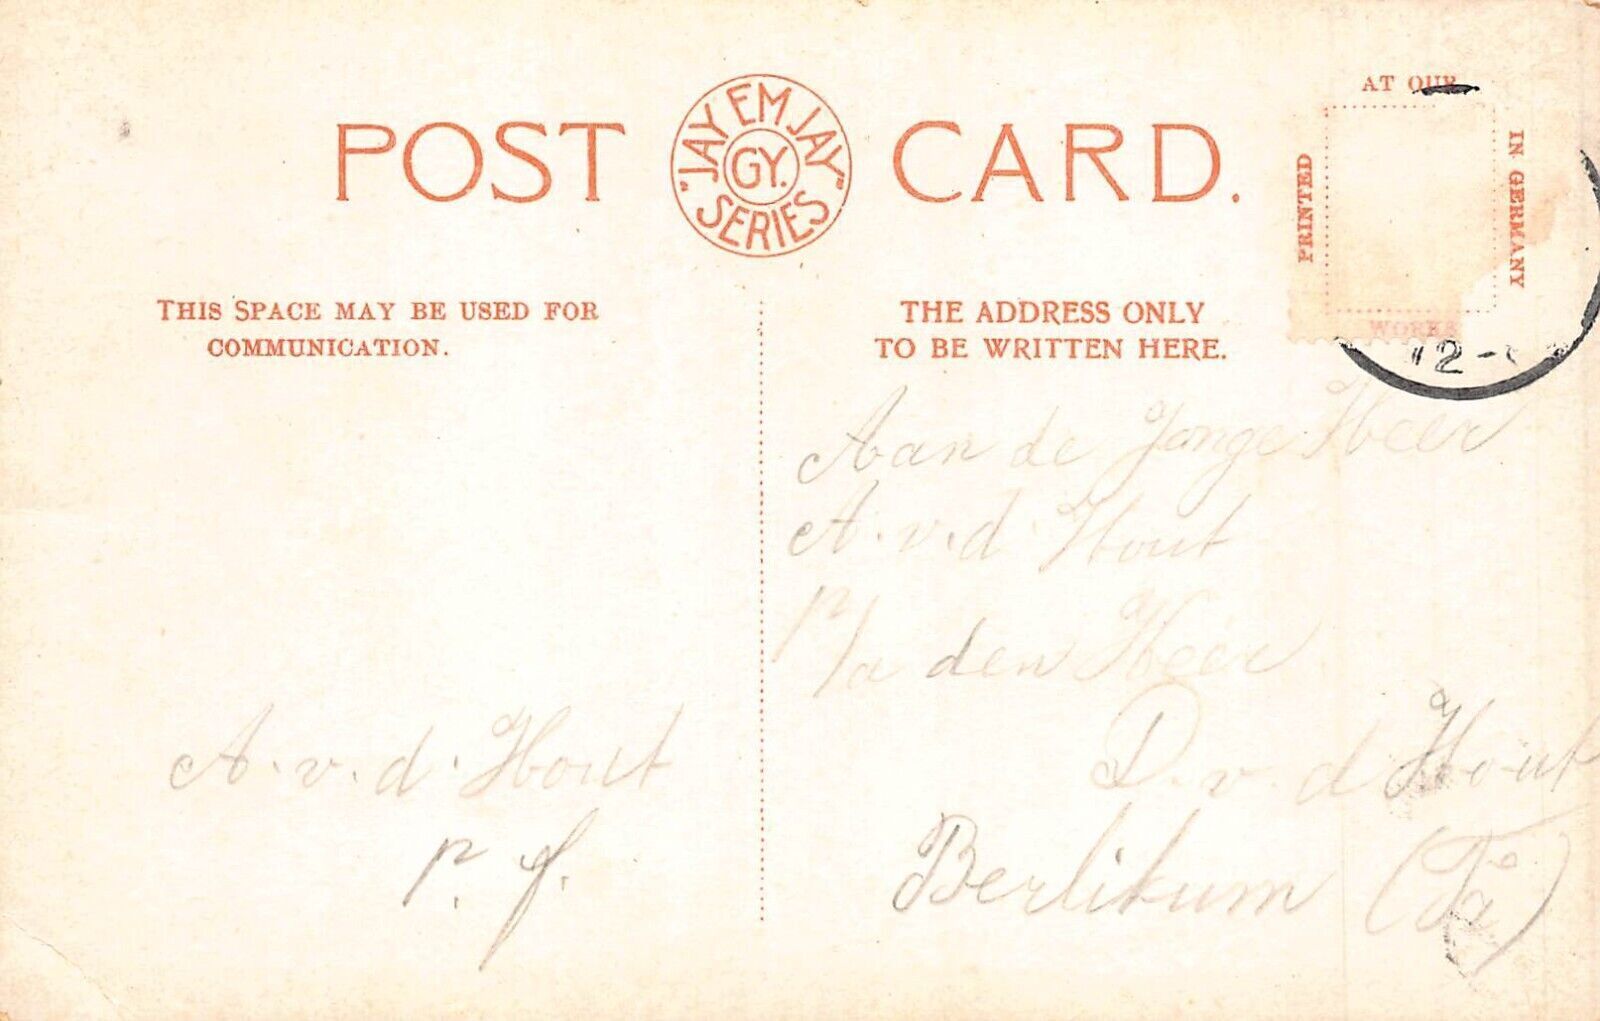 POST CARD.
"JAY EM JAY"
GY.
SERIES
AT OUR
PRINTED
IN GERMANY
WORKS
12-
THIS SPACE MAY BE USED FOR
COMMUNICATION.
THE ADDRESS ONLY
TO BE WRITTEN HERE.
Aan de Jonge Heer
A. v. d. Hout
p/a den Heer
D. v. d Hout
Berlikum
A. v. d. Hout
p. f.